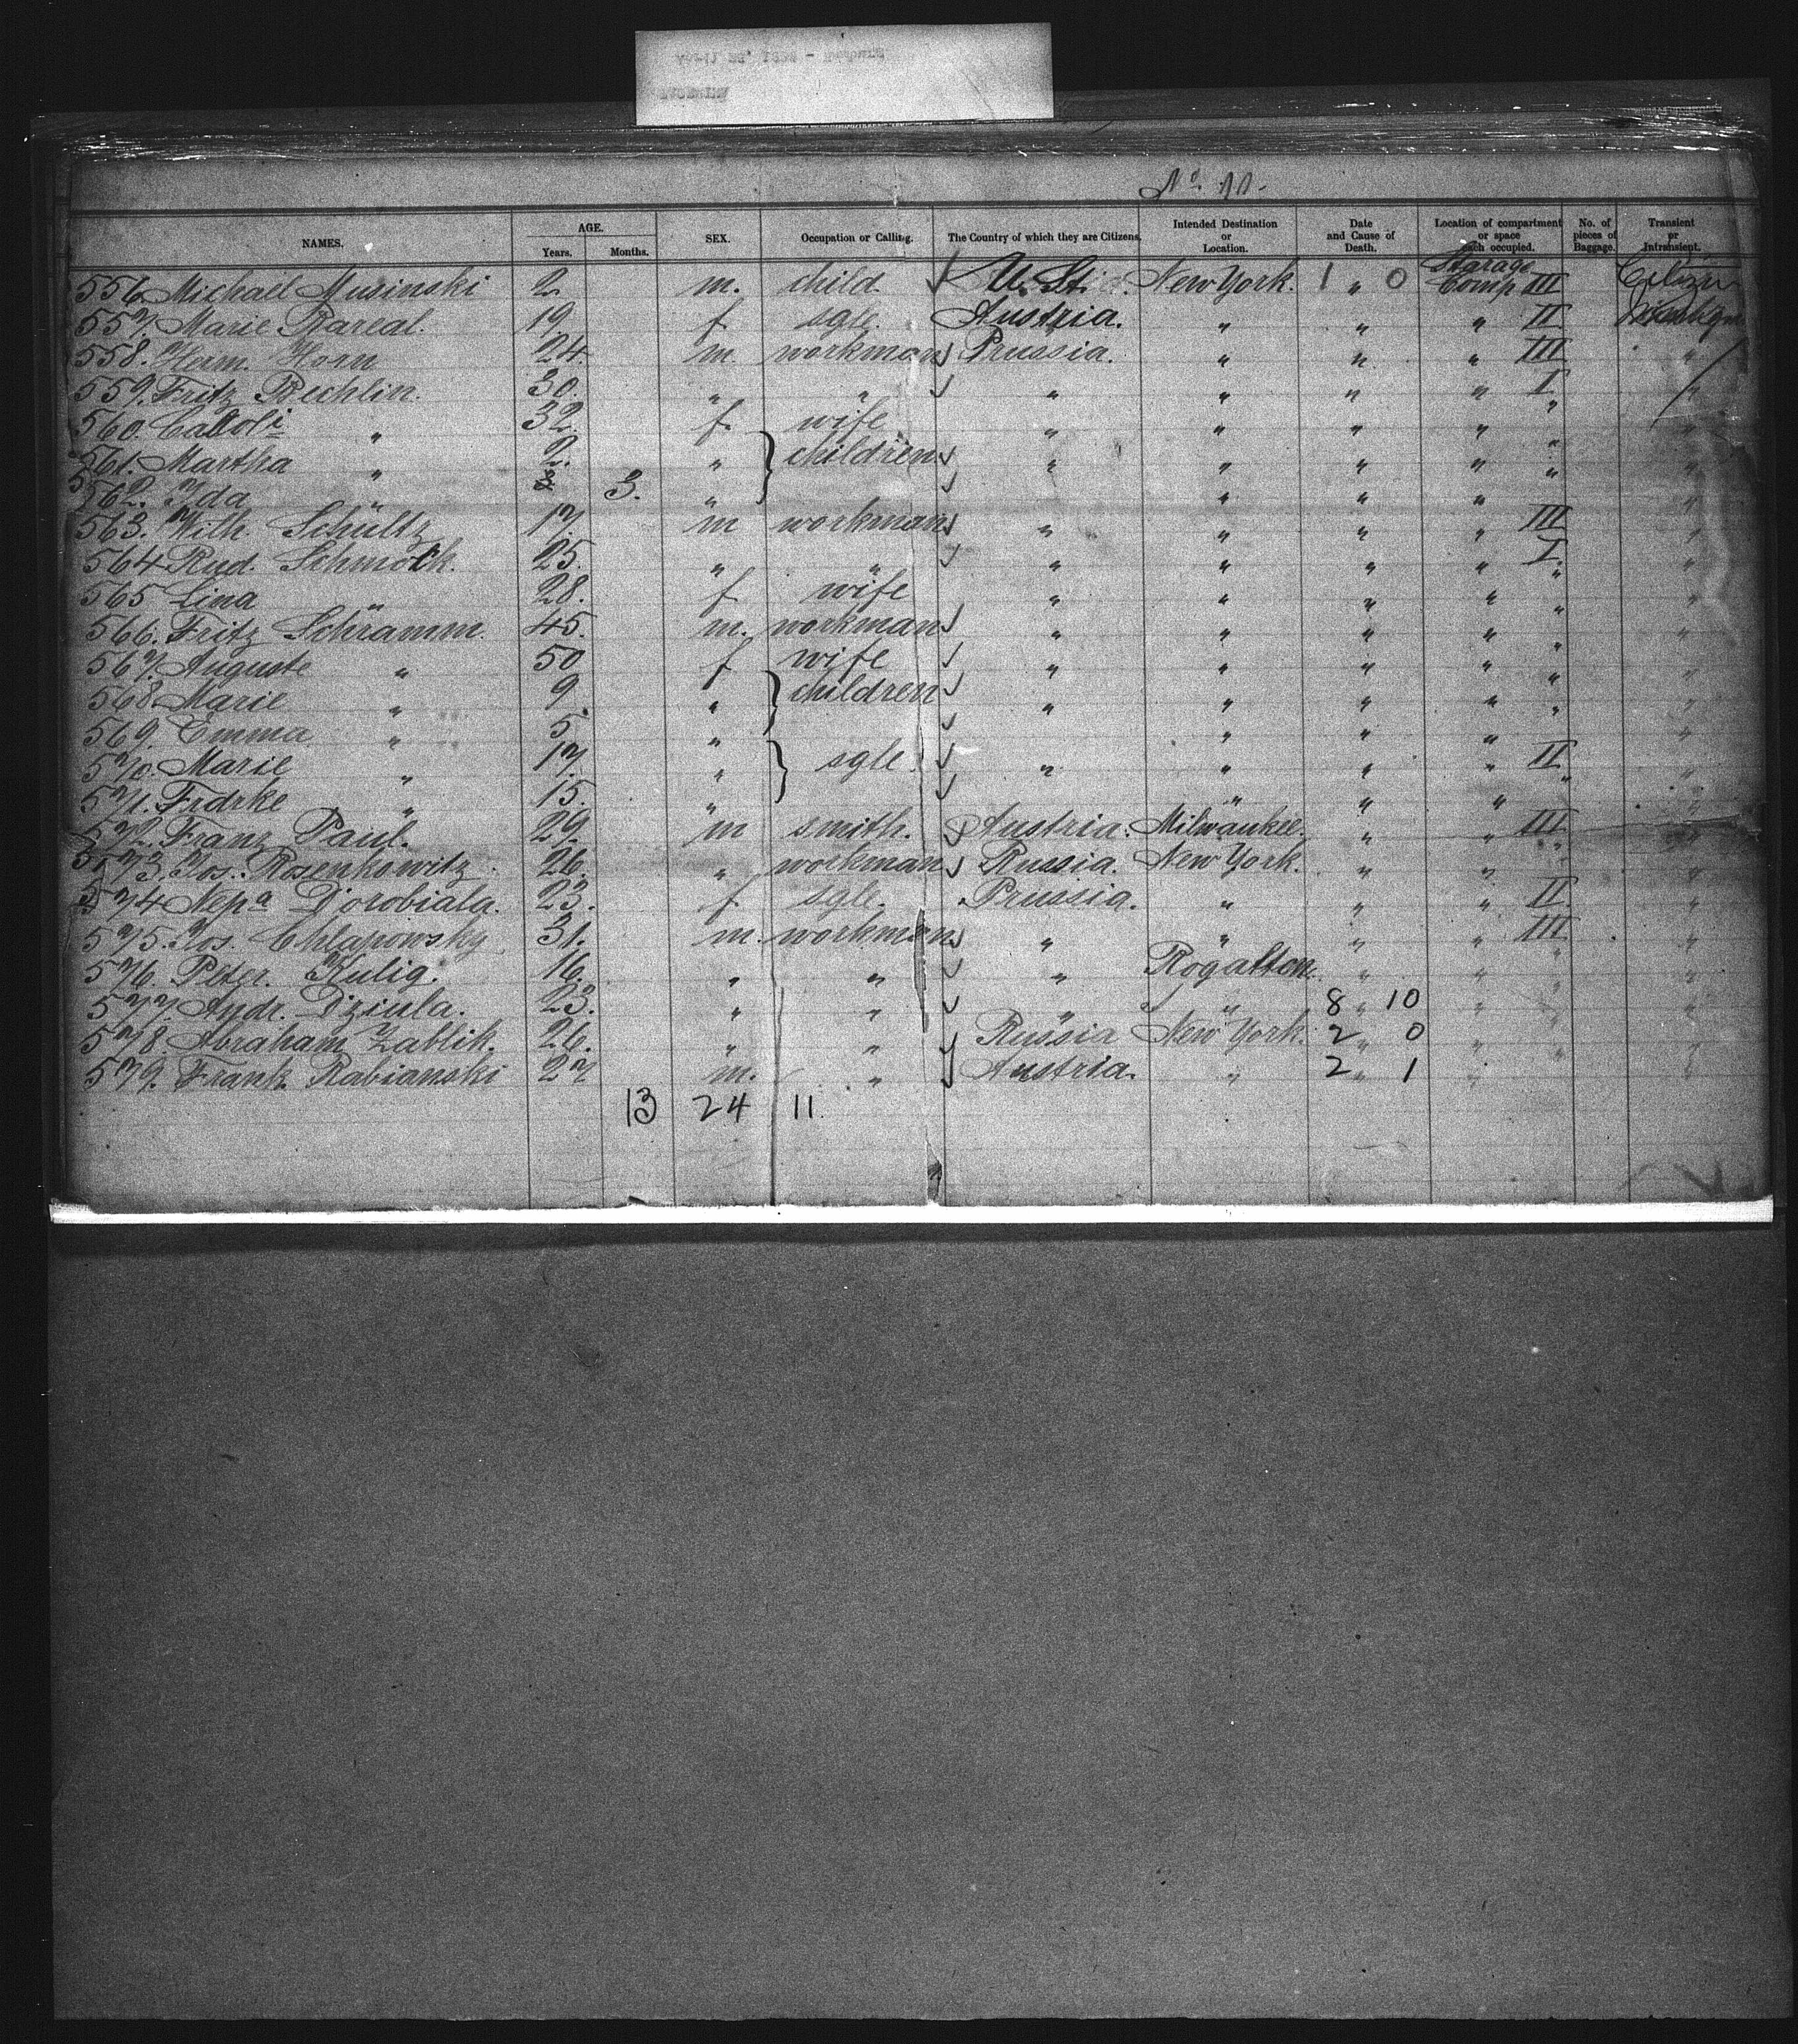 No. 11.
NAMES. AGE. Years. Months. SEX. Occupation or Calling. The Country of which they are Citizens. Intended Destination or Location. Date and Cause of Death. Location of compartment or space each occupied. No. of pieces of Baggage. Transient or Intransient.
556. Michael Musinski 2 m. child U. St. New York. 1 " 0 Starage Comp III Citizen
557. Marie Rareal. 19. f. sgle. Austria. " " " II
558. Herm. Horn 24. m. workman Prussia. " " " III "
559. Fritz Rechlin. 30. " " " " " " I "
560. Caroli " 32. f. wife " " " " " "
561. Martha " 2. " children " " " " " "
562. Ida " 3. " " " " "
563. Wilh. Schültz 17. m workman " " " " III "
564 Rud. Schmöck. 25. " " " " " " I. "
565 Lina " 28. f. wife " " " " " "
566. Fritz Schramm. 45. m. workman " " " " " "
567. Auguste " 50 f wife " " " " " "
568 Marie " 9 " children " " " " " "
569. Emma " 5. " " " " "
570. Marie " 17. " sgle. " " " " II "
571. Frdrke " 15. " " " " " "
572. Franz Paul. 29. m smith. Austria. Milwaukee. " " III "
573. Jos. Rosenkowitz. 26. " workman Russia. New York. " " " "
574 Nepa Dorobiala. 23. f. sgle. Prussia. " " " II. "
575. Jos. Chlapowsky 31. m. workman " " " " III "
576. Peter. Kulig. 16. " " " Rogasten. " " " "
577 Andr. Dziula. 23. " " " " 8 " 10 " " "
578. Abraham Zablik. 26. " " Russia New York. 2 " 0 " " "
579. Frank. Rabianski 27 m. " Austria. " 2 " 1 " "
13 24 11.